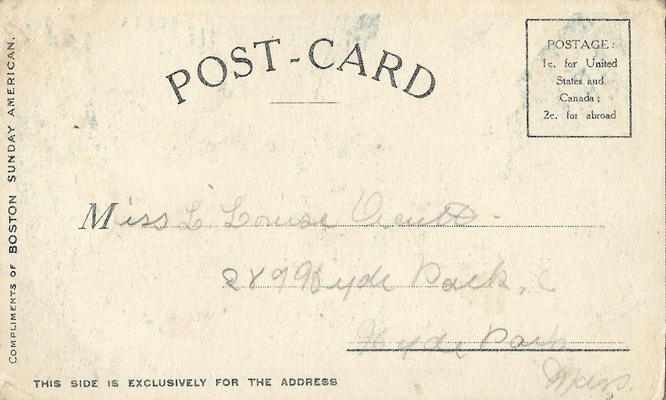 POST-CARD
POSTAGE:
1c. for United
States and
Canada;
2c. for abroad
COMPLIMENTS OF BOSTON SUNDAY AMERICAN.
Miss L. Louise
289 Hyde Park,
Hyde Park
Mass.
THIS SIDE IS EXCLUSIVELY FOR THE ADDRESS